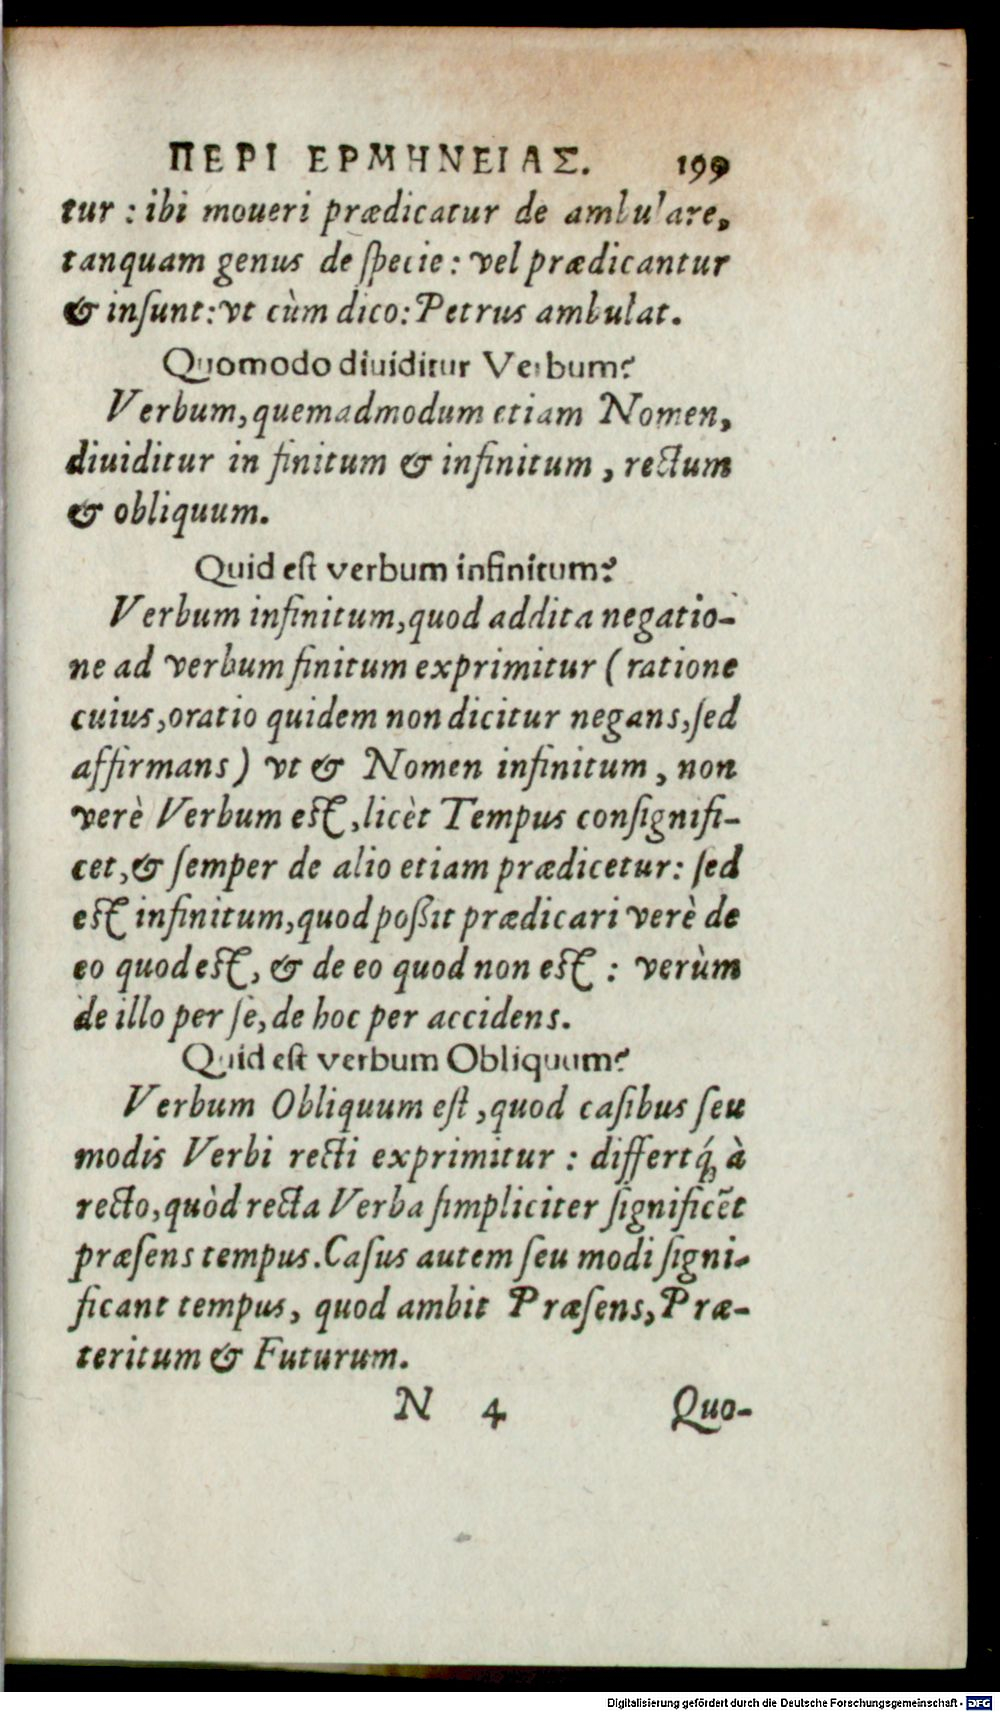 ΠΕΡΙ ΕΡΜΗΝΕΙΑΣ. 199
tur : ibi moueri prædicatur de ambulare,
tanquam genus de ſpecie : vel prædicantur
& inſunt : vt cùm dico : Petrus ambulat.
Quomodo diuiditur Verbum?
Verbum, quemadmodum etiam Nomen,
diuiditur in finitum & infinitum, rectum
& obliquum.
Quid eſt verbum infinitum?
Verbum infinitum, quod addita negatio-
ne ad verbum finitum exprimitur (ratione
cuius, oratio quidem non dicitur negans, ſed
affirmans) vt & Nomen infinitum, non
verè Verbum eſt, licèt Tempus conſignifi-
cet, & ſemper de alio etiam prædicetur : ſed
eſt infinitum, quod poßit prædicari verè de
eo quod eſt, & de eo quod non eſt : verùm
de illo per ſe, de hoc per accidens.
Quid eſt verbum Obliquum?
Verbum Obliquum eſt, quod caſibus ſeu
modis Verbi recti exprimitur : differtq́; à
recto, quòd recta Verba ſimpliciter ſignificẽt
præſens tempus. Caſus autem ſeu modi ſigni-
ficant tempus, quod ambit Præſens, Præ-
teritum & Futurum.
N 4 Quo-
Digitalisierung gefördert durch die Deutsche Forschungsgemeinschaft - DFG